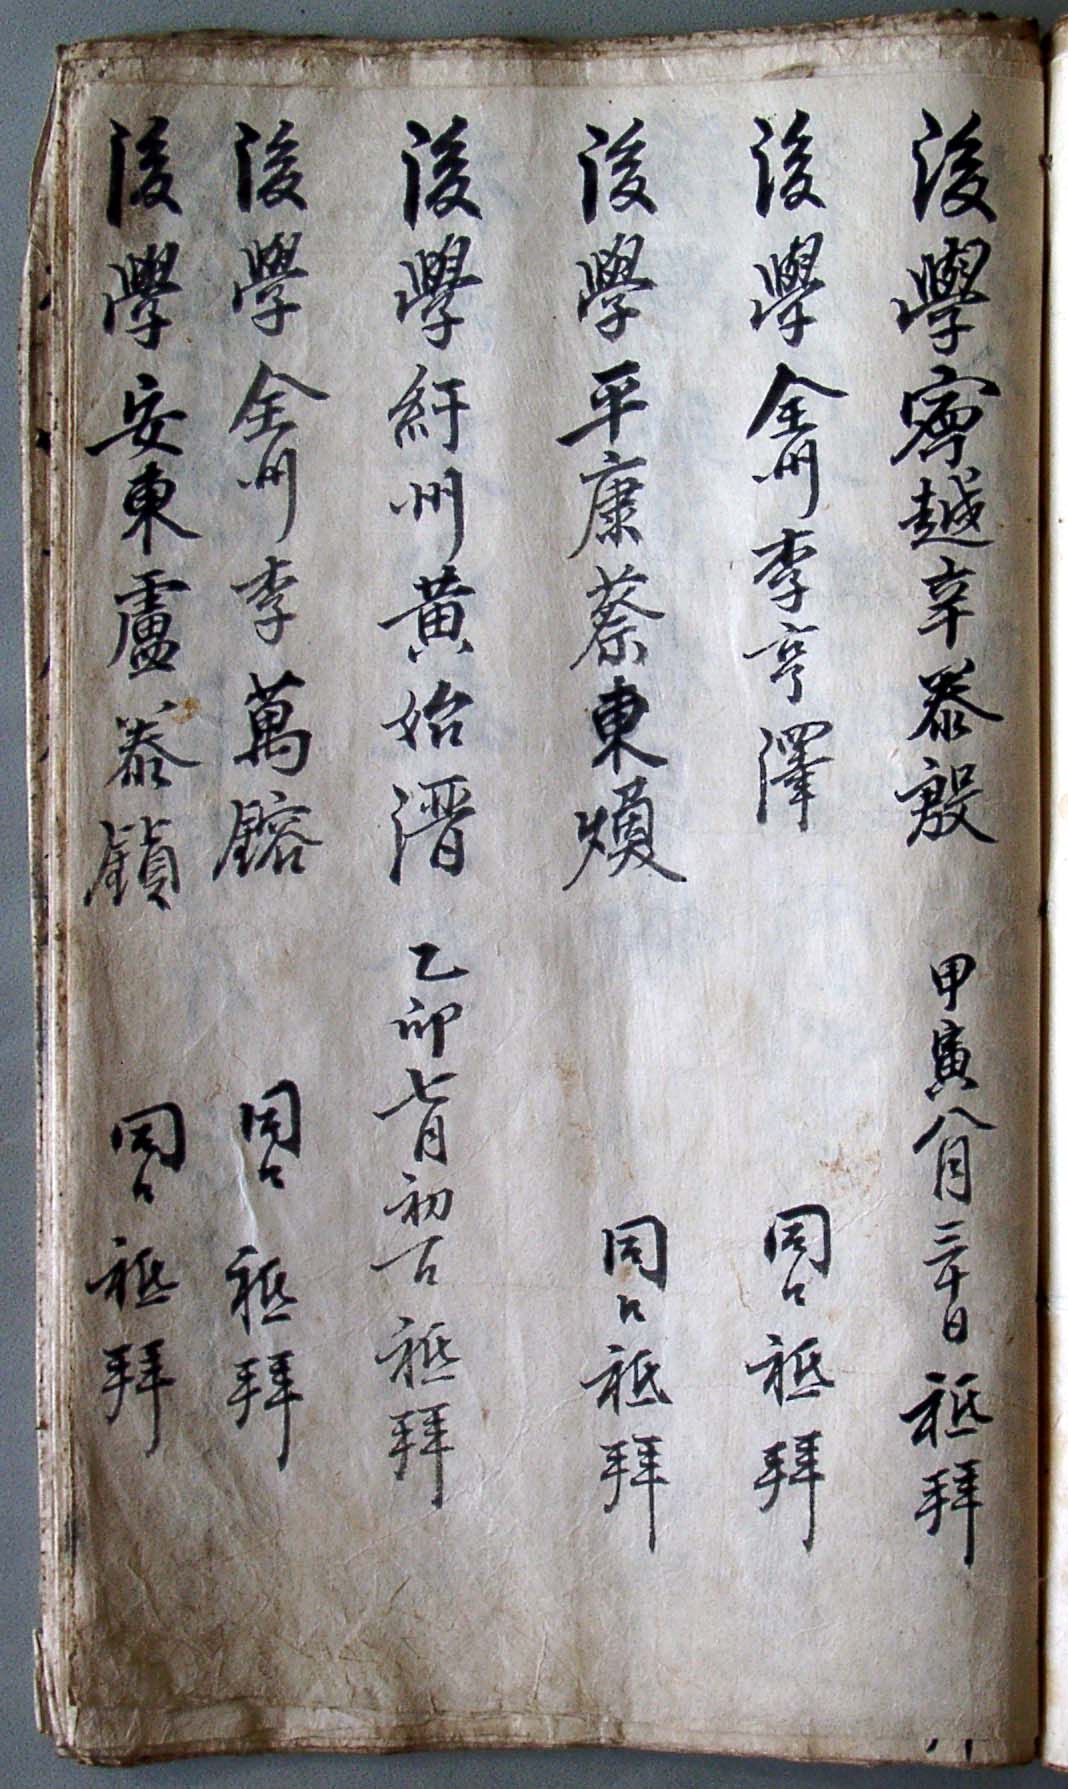 後學寧越辛泰殷 甲寅八月三十日 祗拜
後學全州李亨澤 同日 祗拜
後學平康蔡東煥 同日 祗拜
後學紆州黃始潛 乙卯七月初六日 祗拜
後學全州李萬鎔 同日 祗拜
後學安東盧泰鎭 同日 祗拜